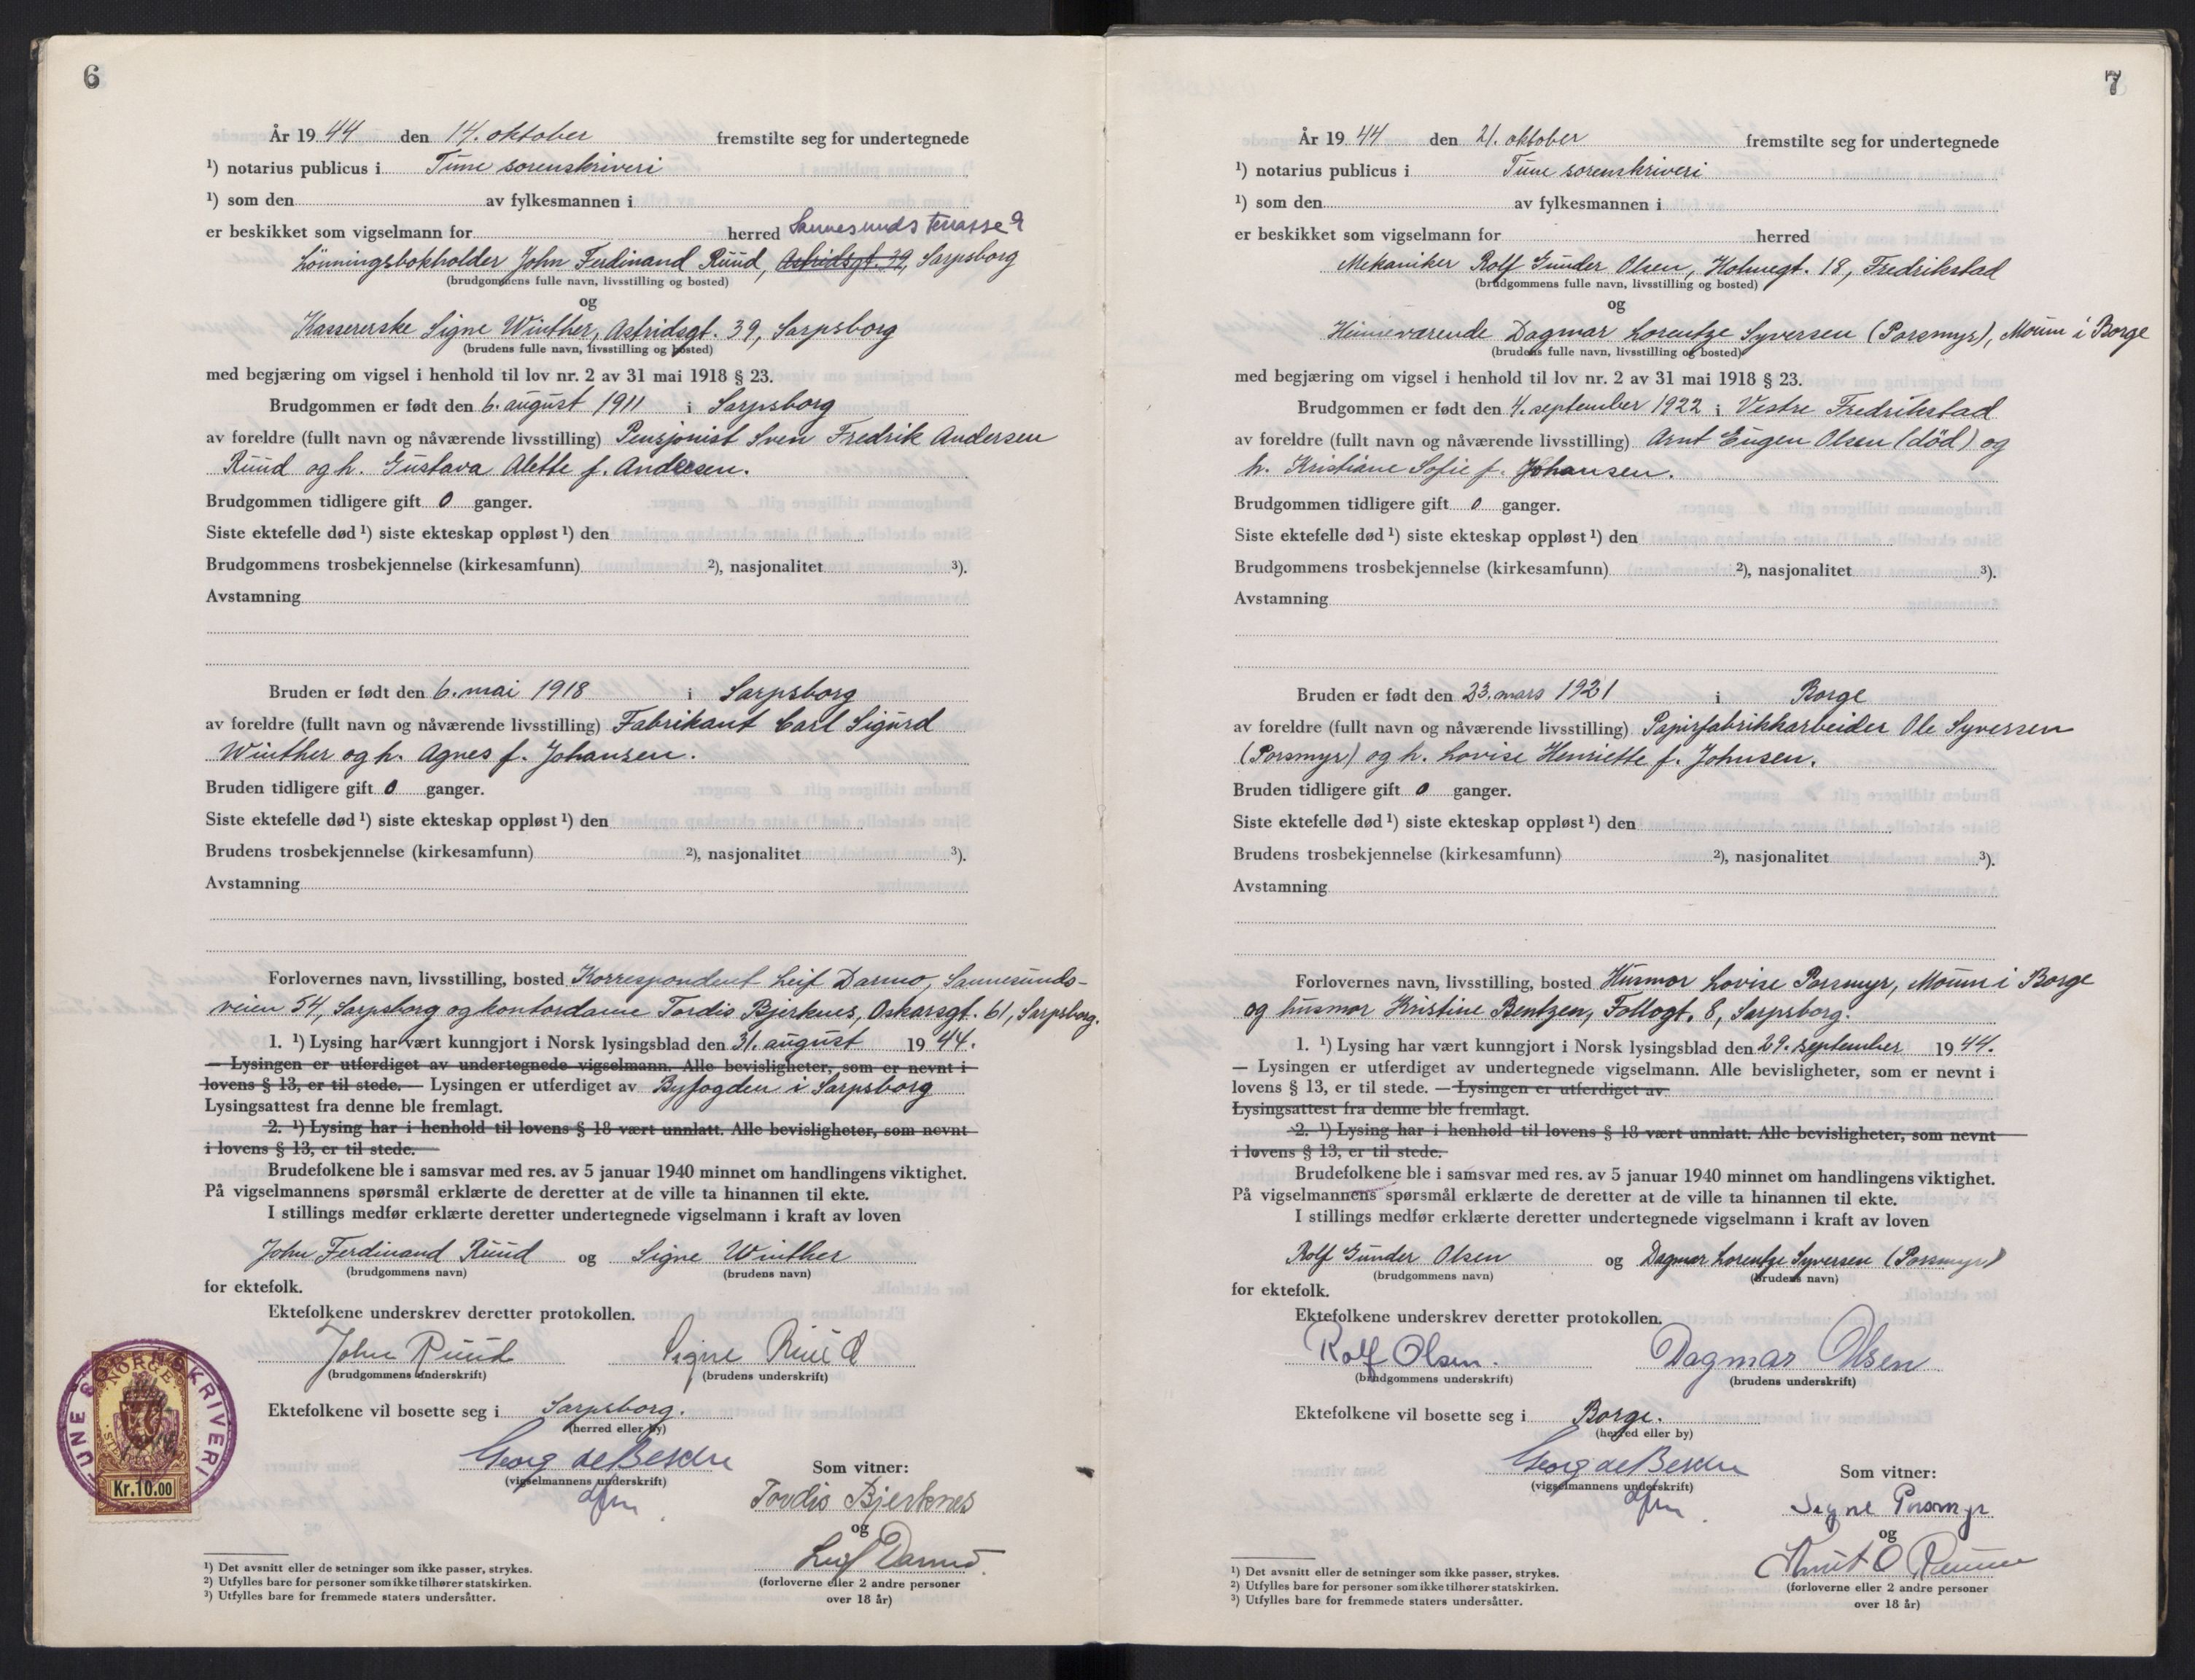 6
År 1944 den 14. oktober fremstilte seg for undertegnede
¹) notarius publicus i Tune sorenskriveri
¹) som den av fylkesmannen i
er beskikket som vigselmann for herred Sannesunds terrasse 9
Lönningsbokholder John Ferdinand Ruud, Astridsgt. 39, Sarpsborg
(brudgommens fulle navn, livsstilling og bosted)
og
Kassererske Signe Winther, Astridsgt. 39, Sarpsborg
(brudens fulle navn, livsstilling og bosted)
med begjæring om vigsel i henhold til lov nr. 2 av 31 mai 1918 § 23.
Brudgommen er født den 6. august 1911 i Sarpsborg
av foreldre (fullt navn og nåværende livsstilling) Pensjonist Sven Fredrik Andersen
Ruud og h. Gustava Alette f. Andersen.
Brudgommen tidligere gift 0 ganger.
Siste ektefelle død ¹) siste ekteskap oppløst ¹) den
Brudgommens trosbekjennelse (kirkesamfunn) ²), nasjonalitet ³).
Avstamning
Bruden er født den 6. mai 1918 i Sarpsborg
av foreldre (fullt navn og nåværende livsstilling) Fabrikant Carl Sigurd
Winther og h. Agnes f. Johansen.
Bruden tidligere gift 0 ganger.
Siste ektefelle død ¹) siste ekteskap oppløst ¹) den
Brudens trosbekjennelse (kirkesamfunn) ²), nasjonalitet ³).
Avstamning
Forlovernes navn, livsstilling, bosted Korrespondent Leif Darmo, Sannesunds-
veien 54, Sarpsborg og kontordame Tordis Bjerknes, Oskarsgt. 61, Sarpsborg.
1. ¹) Lysing har vært kunngjort i Norsk lysingsblad den 31. august 1944.
— Lysingen er utferdiget av undertegnede vigselmann. Alle bevisligheter, som er nevnt i
lovens § 13, er til stede. — Lysingen er utferdiget av Byfogden i Sarpsborg
Lysingsattest fra denne ble fremlagt.
2. ¹) Lysing har i henhold til lovens § 18 vært unnlatt. Alle bevisligheter, som nevnt
i lovens § 13, er til stede.
Brudefolkene ble i samsvar med res. av 5 januar 1940 minnet om handlingens viktighet.
På vigselmannens spørsmål erklærte de deretter at de ville ta hinannen til ekte.
I stillings medfør erklærte deretter undertegnede vigselmann i kraft av loven
John Ferdinand Ruud og Signe Winther
(brudgommens navn) (brudens navn)
for ektefolk.
Ektefolkene underskrev deretter protokollen.
John Ruud Signe Ruud
(brudgommens underskrift) (brudens underskrift)
Ektefolkene vil bosette seg i Sarpsborg.
(herred eller by)
Georg de Besche
(vigselmannens underskrift)
Som vitner:
Tordis Bjerknes
og
Leif Darmo
(forloverne eller 2 andre personer
over 18 år)
TUNE SORENSKRIVERI
NORGE
Kr. 10.00
¹) Det avsnitt eller de setninger som ikke passer, strykes.
²) Utfylles bare for personer som ikke tilhører statskirken.
³) Utfylles bare for fremmede staters undersåtter.
7
År 1944 den 21. oktober fremstilte seg for undertegnede
¹) notarius publicus i Tune sorenskriveri
¹) som den av fylkesmannen i
er beskikket som vigselmann for herred
Mekaniker Rolf Gunder Olsen, Holmegt. 18, Fredrikstad
(brudgommens fulle navn, livsstilling og bosted)
og
Hjemmeværende Dagmar Lorentze Syversen (Porsmyr), Moum i Borge
(brudens fulle navn, livsstilling og bosted)
med begjæring om vigsel i henhold til lov nr. 2 av 31 mai 1918 § 23.
Brudgommen er født den 4. september 1922 i Vestre Fredrikstad
av foreldre (fullt navn og nåværende livsstilling) Arnt Eugen Olsen (död) og
h. Kristiane Sofie f. Johansen.
Brudgommen tidligere gift 0 ganger.
Siste ektefelle død ¹) siste ekteskap oppløst ¹) den
Brudgommens trosbekjennelse (kirkesamfunn) ²), nasjonalitet ³).
Avstamning
Bruden er født den 23. mars 1921 i Borge
av foreldre (fullt navn og nåværende livsstilling) Papirfabrikkarbeider Ole Syversen
(Porsmyr) og h. Lovise Henriette f. Johnsen.
Bruden tidligere gift 0 ganger.
Siste ektefelle død ¹) siste ekteskap oppløst ¹) den
Brudens trosbekjennelse (kirkesamfunn) ²), nasjonalitet ³).
Avstamning
Forlovernes navn, livsstilling, bosted Husmor Lovise Porsmyr, Moum i Borge
og husmor Kristine Bentzen, Follogt. 8, Sarpsborg.
1. ¹) Lysing har vært kunngjort i Norsk lysingsblad den 29. september 1944.
— Lysingen er utferdiget av undertegnede vigselmann. Alle bevisligheter, som er nevnt i
lovens § 13, er til stede. — Lysingen er utferdiget av
Lysingsattest fra denne ble fremlagt.
2. ¹) Lysing har i henhold til lovens § 18 vært unnlatt. Alle bevisligheter, som nevnt
i lovens § 13, er til stede.
Brudefolkene ble i samsvar med res. av 5 januar 1940 minnet om handlingens viktighet.
På vigselmannens spørsmål erklærte de deretter at de ville ta hinannen til ekte.
I stillings medfør erklærte deretter undertegnede vigselmann i kraft av loven
Rolf Gunder Olsen og Dagmar Lorentze Syversen (Porsmyr)
(brudgommens navn) (brudens navn)
for ektefolk.
Ektefolkene underskrev deretter protokollen.
Rolf Olsen. Dagmar Olsen
(brudgommens underskrift) (brudens underskrift)
Ektefolkene vil bosette seg i Borge.
(herred eller by)
Georg de Besche
(vigselmannens underskrift)
Som vitner:
Signe Porsmyr
og
Knut O
(forloverne eller 2 andre personer
over 18 år)
¹) Det avsnitt eller de setninger som ikke passer, strykes.
²) Utfylles bare for personer som ikke tilhører statskirken.
³) Utfylles bare for fremmede staters undersåtter.